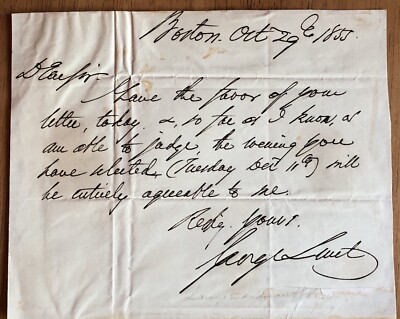 Boston. Oct 29th 1855
Dear Sir
I have the favor of your
letter, today, &, so far as I know, or
am able to judge, the evening you
have selected, (Tuesday Dec 11th) will
be entirely agreeable to me.
Resply. yours.
George